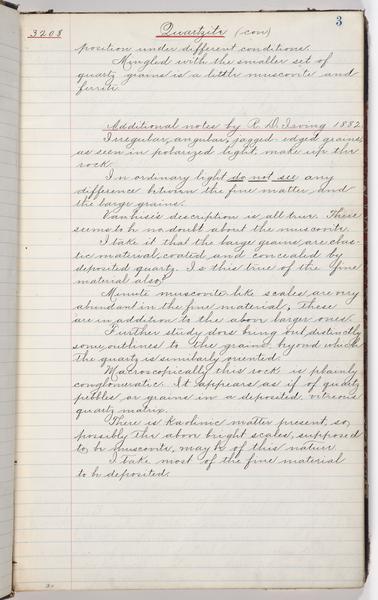 3
3208 Quartzite (con)
position under different conditions.
Mingled with the smaller set of
quartz grains is a little muscovite and
ferrite.
Additional notes by R. D. Irving 1882
Irregular, angular, jagged-edged grains,
as seen in polarized light, make up the
rock.
In ordinary light do not see any
difference between the fine matter and
the large grains.
Vanhise's description is all true. There
seems to be no doubt about the muscovite.
I take it that the large grains are clas-
tic material, coated and concealed by
deposited quartz. Is this true of the fine
material also?
Minute muscovite-like scales are very
abundant in the fine material, these
are in addition to the above larger ones.
Further study does bring out distinctly
some outlines to the grains beyond which
the quartz is similarly oriented.
Macroscopically this rock is plainly
conglomeratic. It appears as if of quartz
pebbles or grains in a deposited vitreous
quartz matrix.
There is kaolinic matter present, so
possibly the above bright scales, supposed
to be muscovite, may be of this nature.
I take most of the fine material
to be deposited.